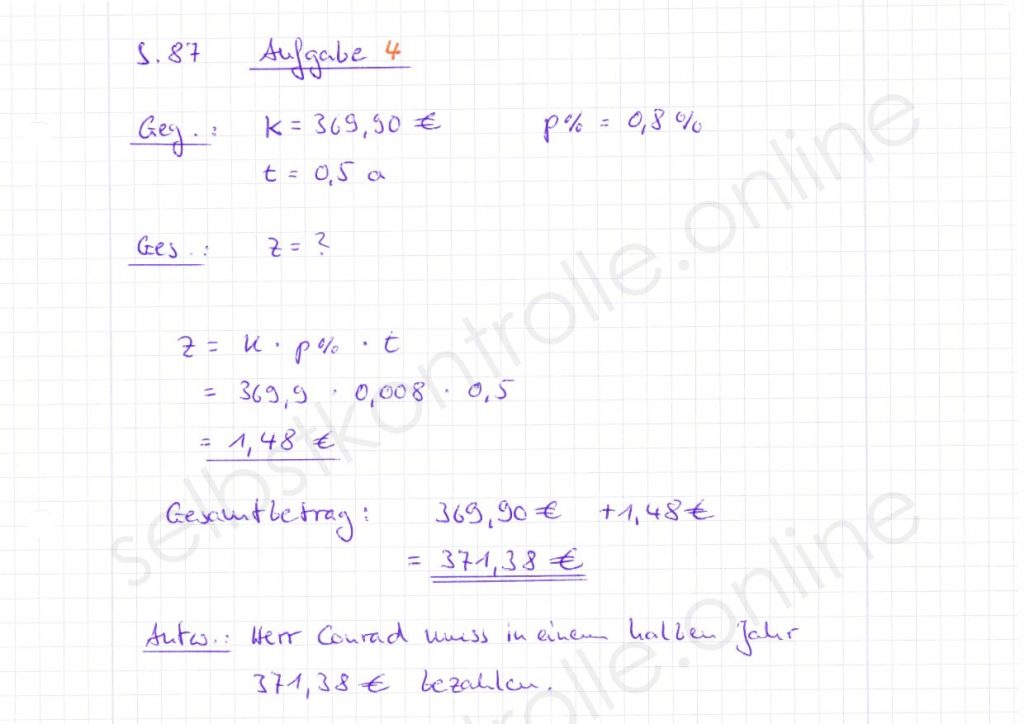 S. 87 Aufgabe 4
Geg.: K = 369,90 € p% = 0,8 %
t = 0,5 a
Ges.: Z = ?
Z = K · p% · t
= 369,9 · 0,008 · 0,5
= 1,48 €
Gesamtbetrag: 369,90 € + 1,48 €
= 371,38 €
Antw.: Herr Conrad muss in einem halben Jahr
371,38 € bezahlen.
selbstkontrolle.online
selbstkontrolle.online